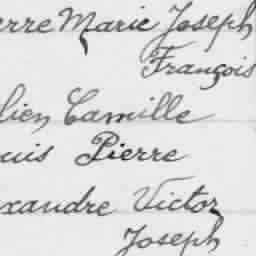 erre Marie Joseph
François
lien Camille
uis Pierre
xandre Victor
Joseph